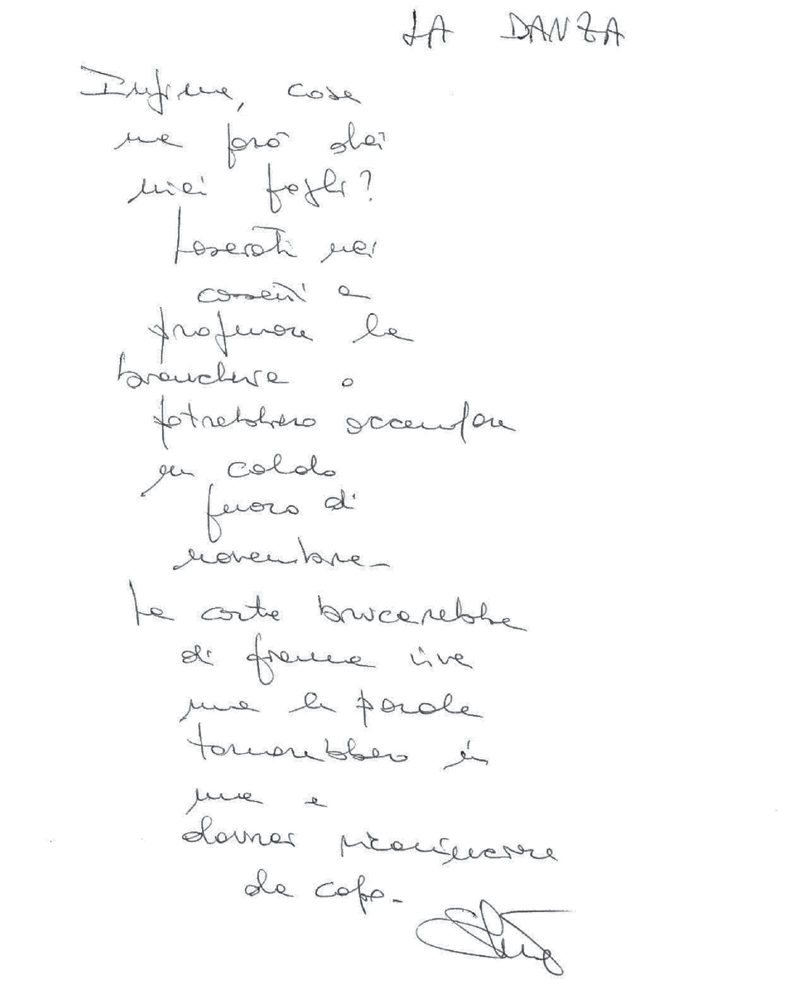 LA DANZA
Infine, cosa
ne farò dei
miei fogli?
Lasciarli nei
cassetti a
profumare la
biancheria o
potrebbero accendere
un caldo
fuoco di
novembre
La carta brucerebbe
di fiamma viva
ma le parole
tornerebbero in
me e
dovrei ricominciare
da capo.